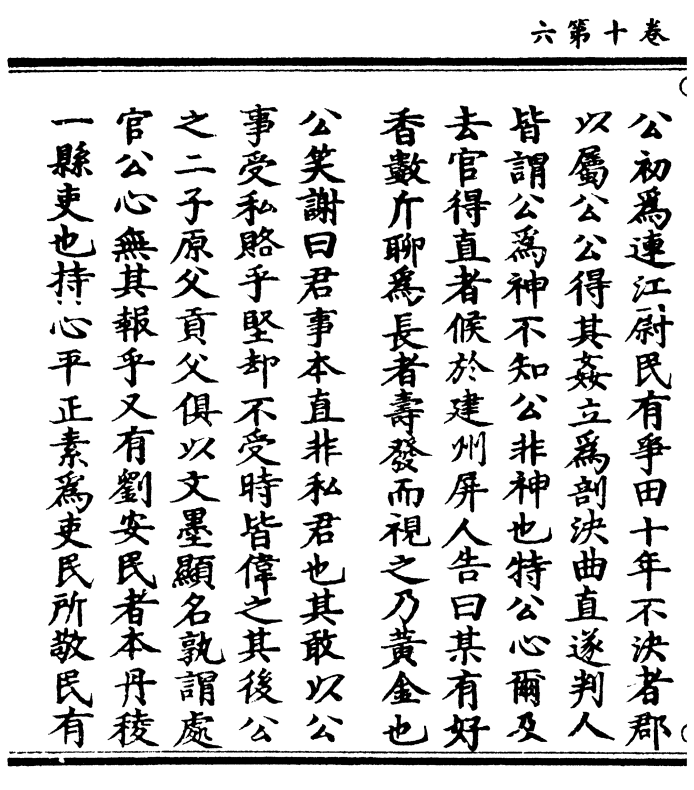 卷十第六
公初爲連江尉民有爭田十年不決者郡
以屬公公得其姦立爲剖決曲直遂判人
皆謂公爲神不知公非神也特公心爾及
去官得直者候於建州屏人告曰某有好
香數斤聊爲長者壽發而視之乃黃金也
公笑謝曰君事本直非私君也其敢以公
事受私賂乎堅却不受時皆偉之其後公
之二子原父貢父俱以文墨顯名孰謂處
官公心無其報乎又有劉安民者本丹稜
一縣吏也持心平正素爲吏民所敬民有